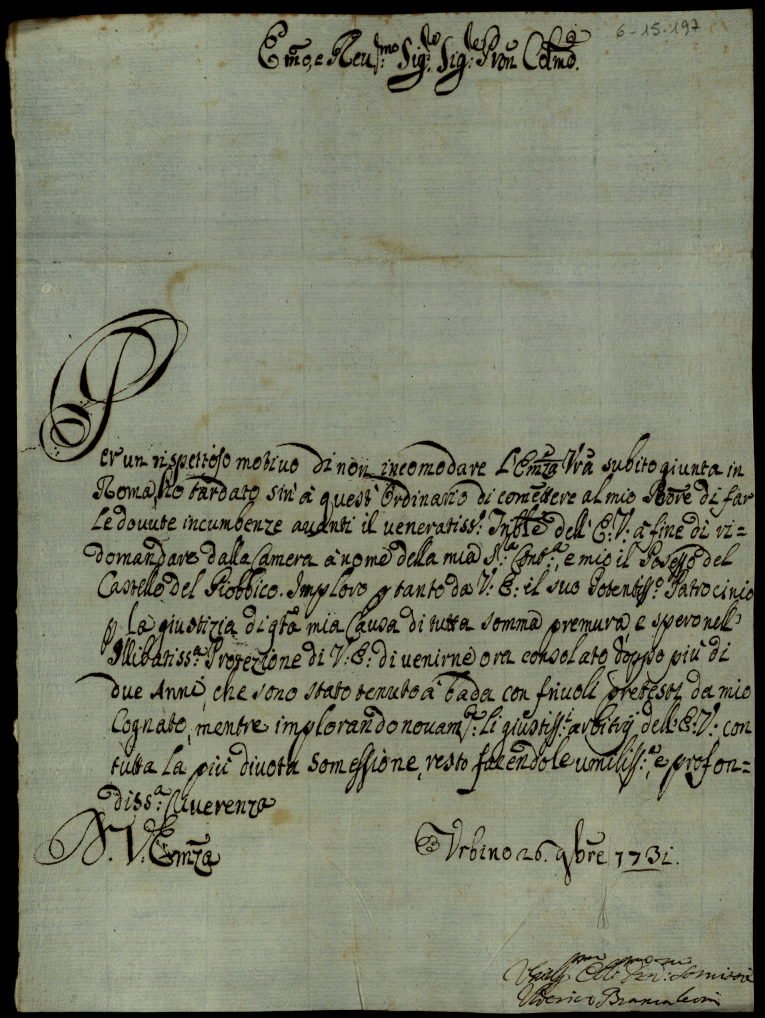 6-15-197
Em̃o, e Reu.mo Sig.re Sig.re Pron̄ Colm̃o.
Per un rispettoso motiuo di non incomodare L'Em̃za Vr̃a subito giunta in
Roma, hò tardato sin' à quest' Ordinario di com̃ettere al mio di far
Le douute incumbenze auanti il veneratiss.o dell' E: V: à fine di ri=
domandare dalla Camera à nome della mia S.ra Cont.a, e mio il Possesso del
Castello del Piobbico. Imploro p tanto da V: E: il suo Potentiss.o Patrocinio
p la giustizia di q̃ta mia Causa di tutta somma premura, e spero nell'
Illibatiss.a Protezione di V: E: di venirne ora consolato doppo più di
due Anni, che sono stato tenuto à bada con friuoli pretesti da mio
Cognato, mentre implorando nouam.te li giustiss.i arbitrij dell' E: V: con
tutta La più diuota somessione, resto facendole umiliss.a, e profon=
diss.a Riuerenza
D. V. Em̃za
Vrbino 26. 9bre 1731.
Vderico Brancaleoni